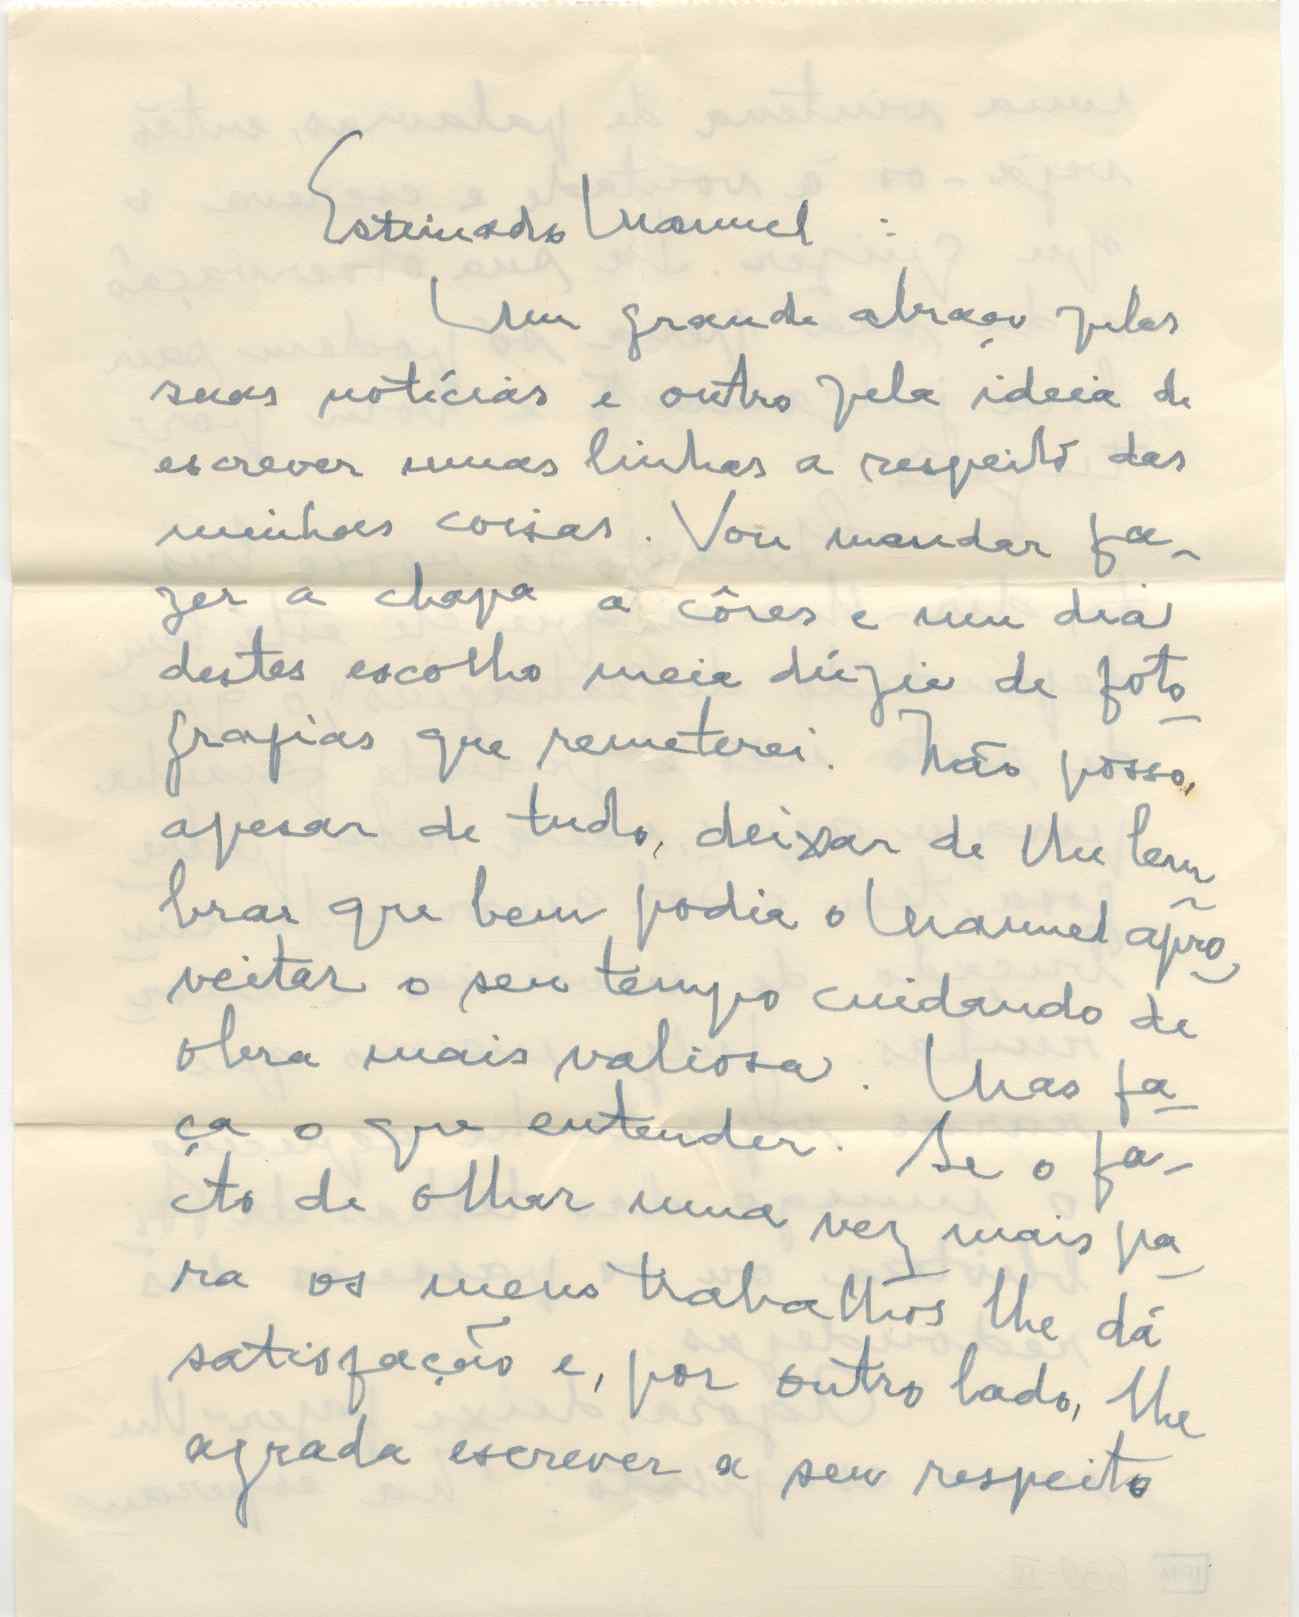 Estimado Manuel :
Um grande abraço pelas
suas notícias e outro pela ideia de
escrever umas linhas a respeito das
minhas coisas. Vou mandar fa-
zer a chapa a côres e um dia
destes escolho meia dúzia de foto-
grafias que remeterei. Não posso,
apesar de tudo, deixar de lhe lem-
brar que bem podia o Manuel apro-
veitar o seu tempo cuidando de
obra mais valiosa. Mas fa-
ça o que entender. Se o fa-
cto de olhar uma vez mais pa-
ra os meus trabalhos lhe dá
satisfação e, por outro lado, lhe
agrada escrever a seu respeito